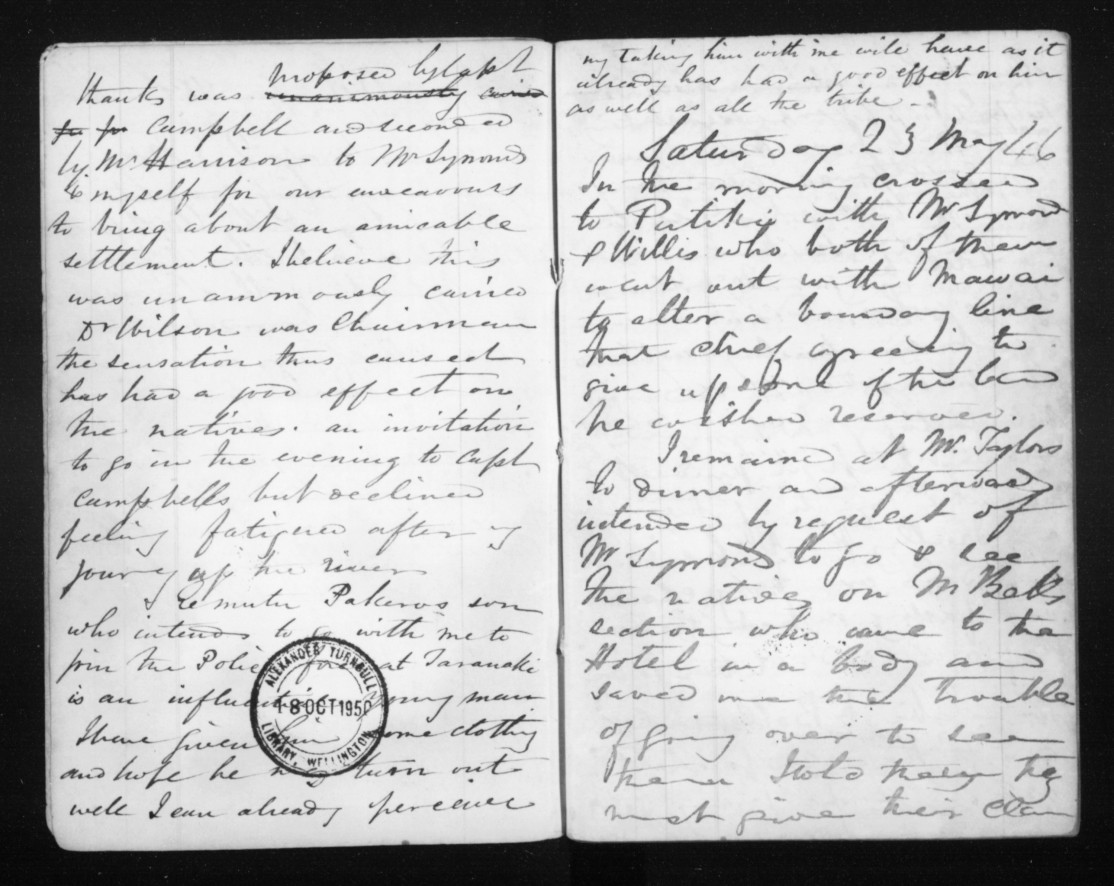 proposed by Capt
thanks was unanimously carried
for for Campbell and seconded
by Mr Harrison to Mr Symonds
& myself for our endeavours
to bring about an amicable
settlement. I believe this
was unanimously carried
Dr Wilson was Chairman
the sensation thus caused
has had a good effect on
the natives. an invitation
to go in the evening to Capt
Campbells but declined
feeling fatigued after my
journey up the river
Pakeros son
who intends to go with me to
join the Police force at Taranaki
is an influential young man
I have given him some clothing
and hope he may turn out
well I can already perceive
ALEXANDER TURNBULL
18 OCT 1950
LIBRARY, WELLINGTON
my taking him with me will have as it
already has had a good effect on him
as well as all the tribe.
Saturday 23 May /46
In the morning crossed
to Putikio with Mr Symonds
& Willis who both of them
went out with Mawai
to alter a boundary line
that chief agreeing to
give up some of the land
he wished reserved.
I remained at Mr. Taylors
to dinner and afterwards
intended by request of
Mr Symonds to go & see
the natives on Mr Bells
section who came to the
Hotel in a body and
saved me the trouble
of going over to see
them I told them they
must give their claim